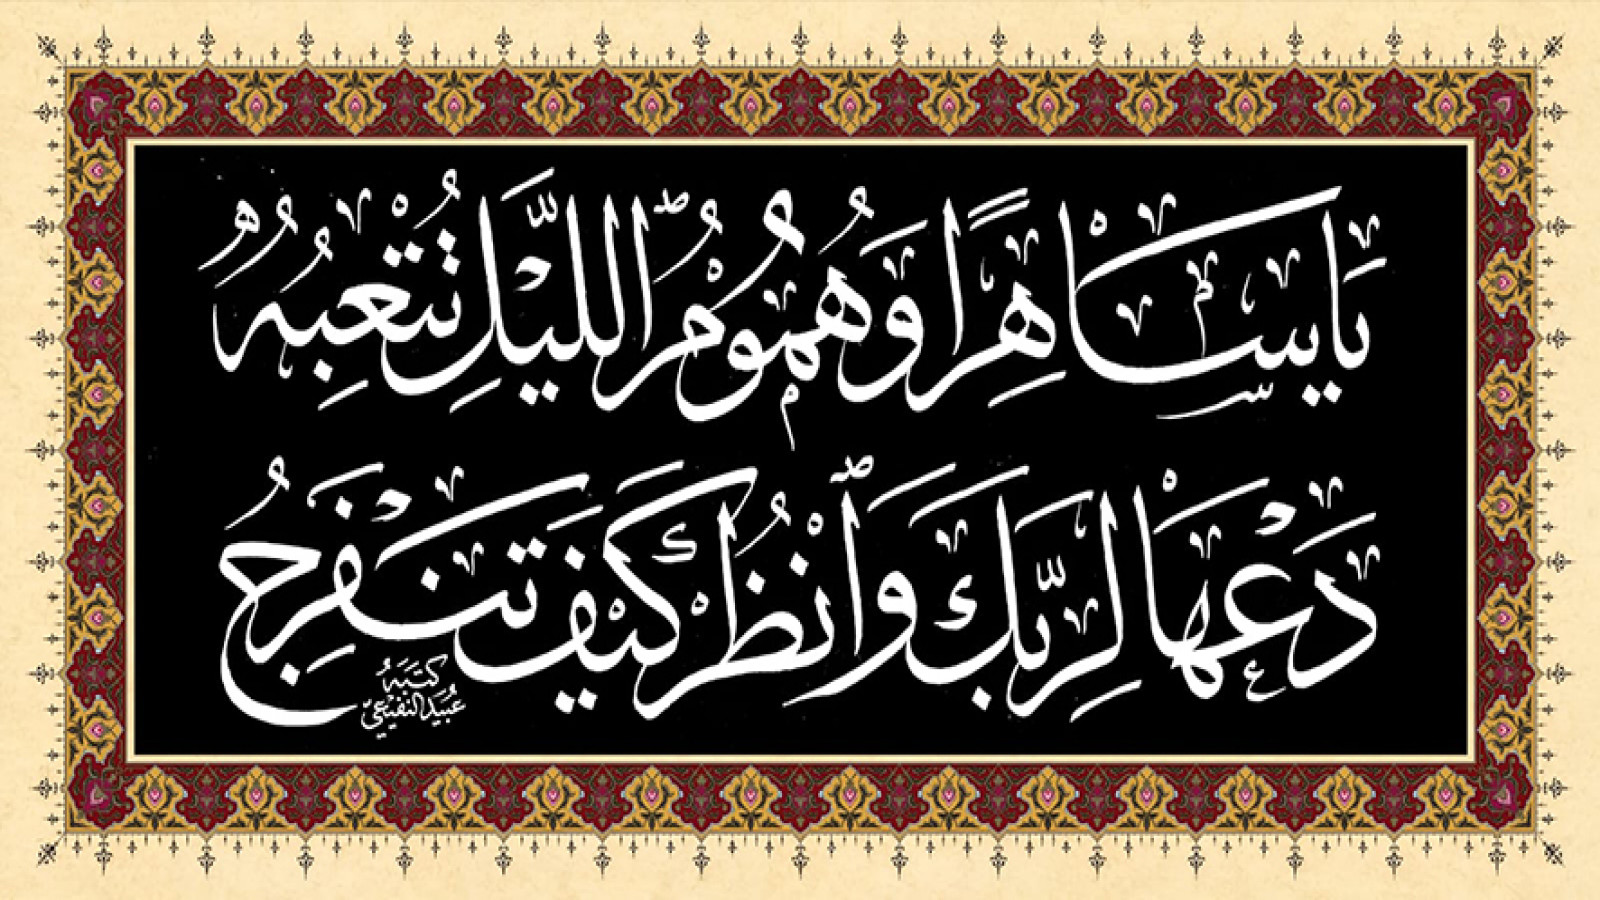 يَا سَاهِرًا وَهُمُومُ ٱللَّيْلِ تُتْعِبُهُ
دَعْهَا لِرَبِّكَ وَٱنْظُرْ كَيْفَ تَنْفَرِجُ
كَتَبَهُ
عُبَيْد النفيعي